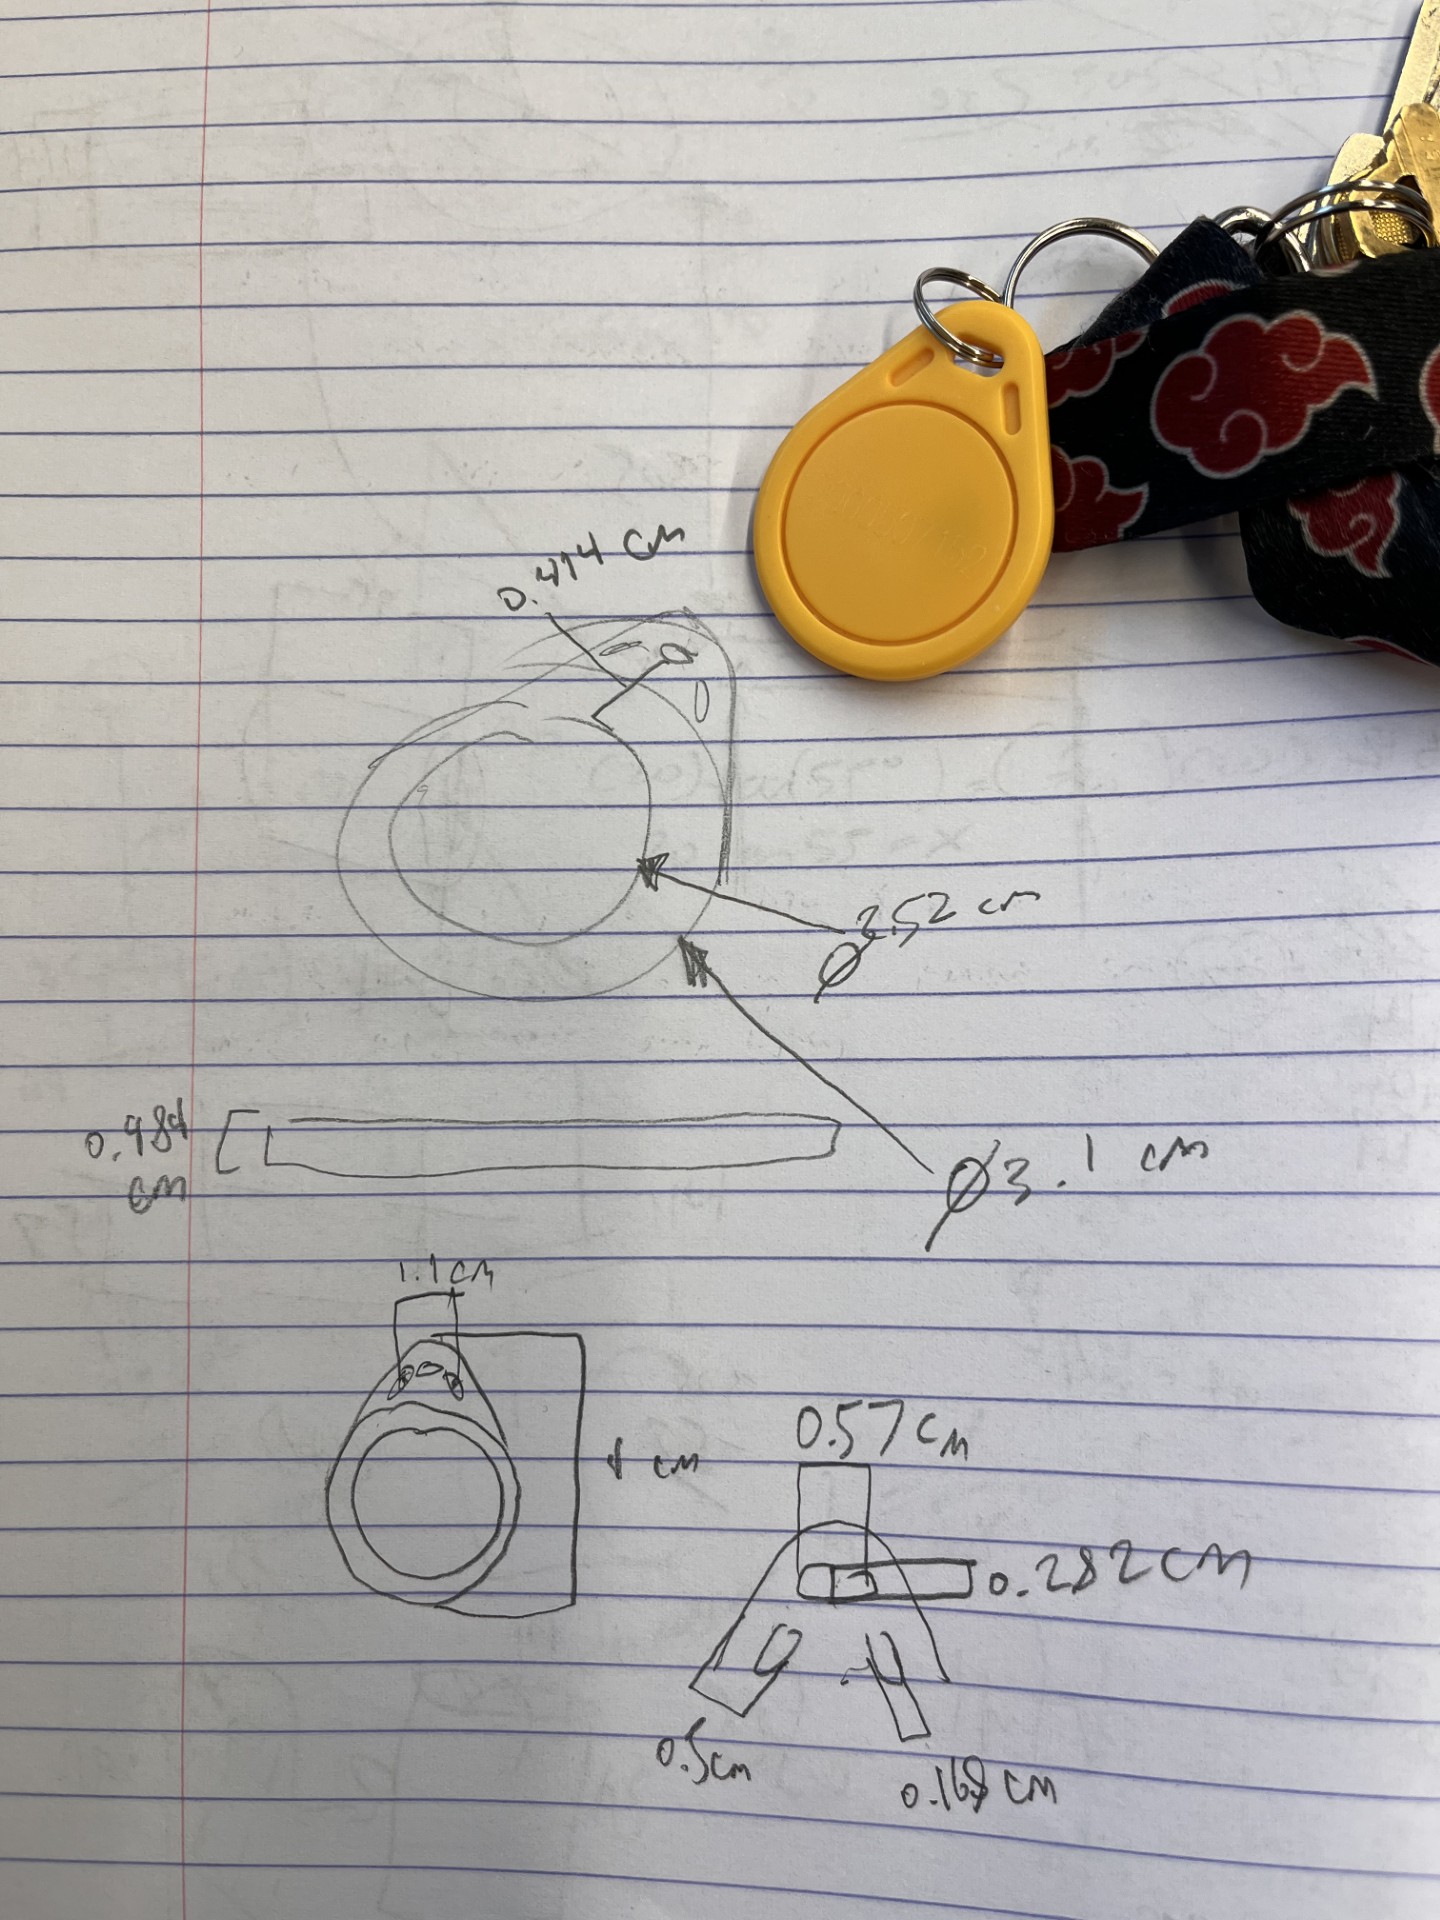 0.414 cm
Ø2.52 cm
Ø3.1 cm
0.484
cm
1.1 cm
cm
0.57 cm
0.282 cm
0.5cm
0.168 cm